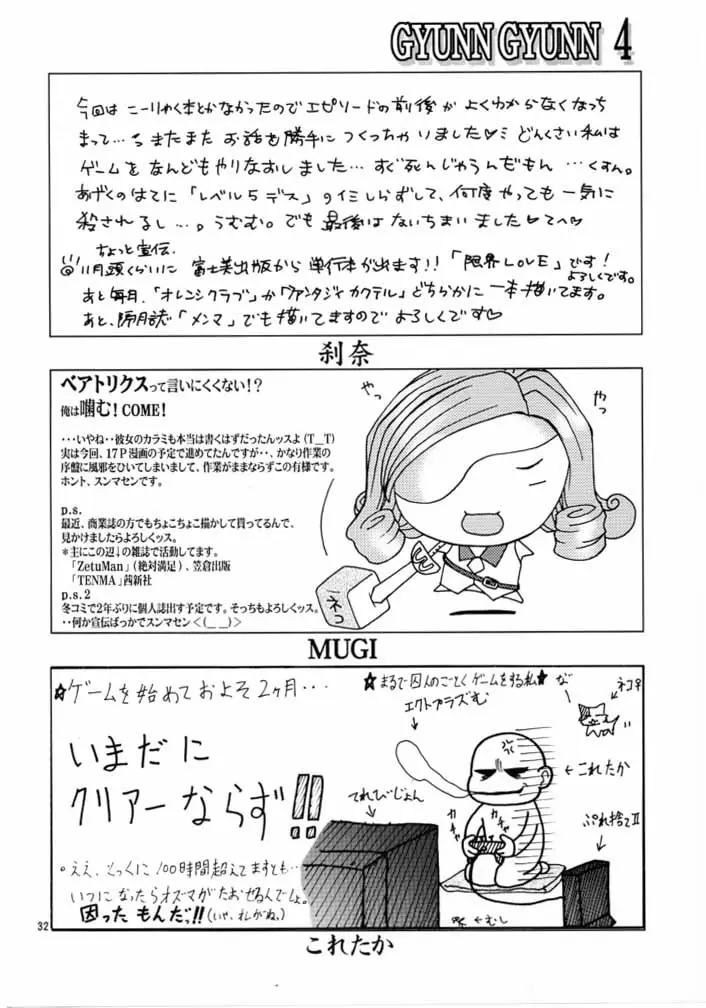 GYUNN GYUNN 4
今回はこーりゃく本とかなかったのでエピソードの前後がよくわからなくなっち
まって…またまたお話を勝手につくっちゃいました♡ミ どんくさい私は
ゲームをなんどもやりなおしました…すぐ死んじゃうんだもん…くすん。
あげくのはてに「レベル5デス」のイミしらずして、何度やっても一気に
殺されるし…。うむむ。でも最後はないちまいました♡てへ♡
ちょっと宣伝.
11月頭くらいに富士美出版から単行本が出ます!!「限界LOVE」です!
よろしくです。
あと毎月、「オレンジクラブ」か「ファンタジィカクテル」どちらかに一本描いてます。
あと、隔月誌「メンマ」でも描いてますのでよろしくです♡
刹奈
ベアトリクスって言いにくくない!?
俺は噛む!COME!
・・・いやね・・彼女のカラミも本当は書くはずだったんッスよ(T__T)
実は今回、17P漫画の予定で進めてたんですが・・、かなり作業の
序盤に風邪をひいてしまいまして、作業がままならずこの有様です。
ホント、スンマセンです。
p.s.
最近、商業誌の方でもちょこちょこ描かして貰ってるんで、
見かけましたらよろしくッス。
*主にこの辺↓の雑誌で活動してます。
「ZetuMan」(絶対満足)、笠倉出版
「TENMA」茜新社
p.s.2
冬コミで2年ぶりに個人誌出す予定です。そっちもよろしくッス。
・・何か宣伝ばっかでスンマセン<(__ __)>
やっ
やっ
ネコ
MUGI
☆ゲームを始めておよそ2ヶ月・・・
いまだに
クリアーならず!!
。ええ、とっくに100時間超えてますとも…
いつになったらオズマがたおせるんでしょ。
困ったもんだっ!!(いや、オレがね。)
★まるで囚人のごとくゲームをする私★
エクトプラズむ
な゛
ネコ♀
←これたか
てれびじょん
ガチャ
ガチャ
ぷれ捨てⅡ
←むし
32
これたか